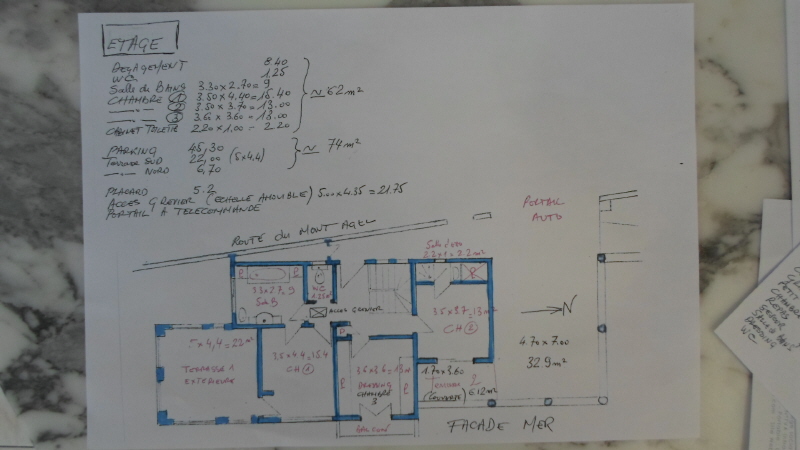 ETAGE
DEGAGEMENT 8.40
WC 1.25
Salle de BAINS 3.30 x 2.70 = 9
CHAMBRE 1 3.50 x 4.40 = 15.40
—"— 2 3.50 x 3.70 = 13.00
—"— 3 3.60 x 3.60 = 13.00
CABINET TOILETTE 2.20 x 1.00 = 2.20
≃ 62 m²
PARKING 45,30
TERRASSE SUD 22,00 (5x4.4)
—"— NORD 6,70
≃ 74 m²
PLACARD 5.2
ACCES GRENIER (ECHELLE AMOVIBLE) 5.00 x 4.35 = 21.75
PORTAIL A TELECOMMANDE
ROUTE du MONT AGEL
PORTAIL
AUTO
Salle d'eau
2.2 x 1 = 2.2 m²
P
P
WC
1.25 m²
3.3 x 2.7 = 9
Salle B
ACCES GRENIER
3.5 x 3.7 = 13 m²
CH 2
N
4.70 x 7.00
32.9 m²
5 x 4,4 = 22 m²
TERRASSE 1
EXTERIEURE
3.5 x 4.4 = 15.4
CH 1
P
3.6 x 3.6 = 13 m²
CHAMBRE
3
P
P
1.70 x 3.60
6.12 m²
BALCON
FACADE MER
WC